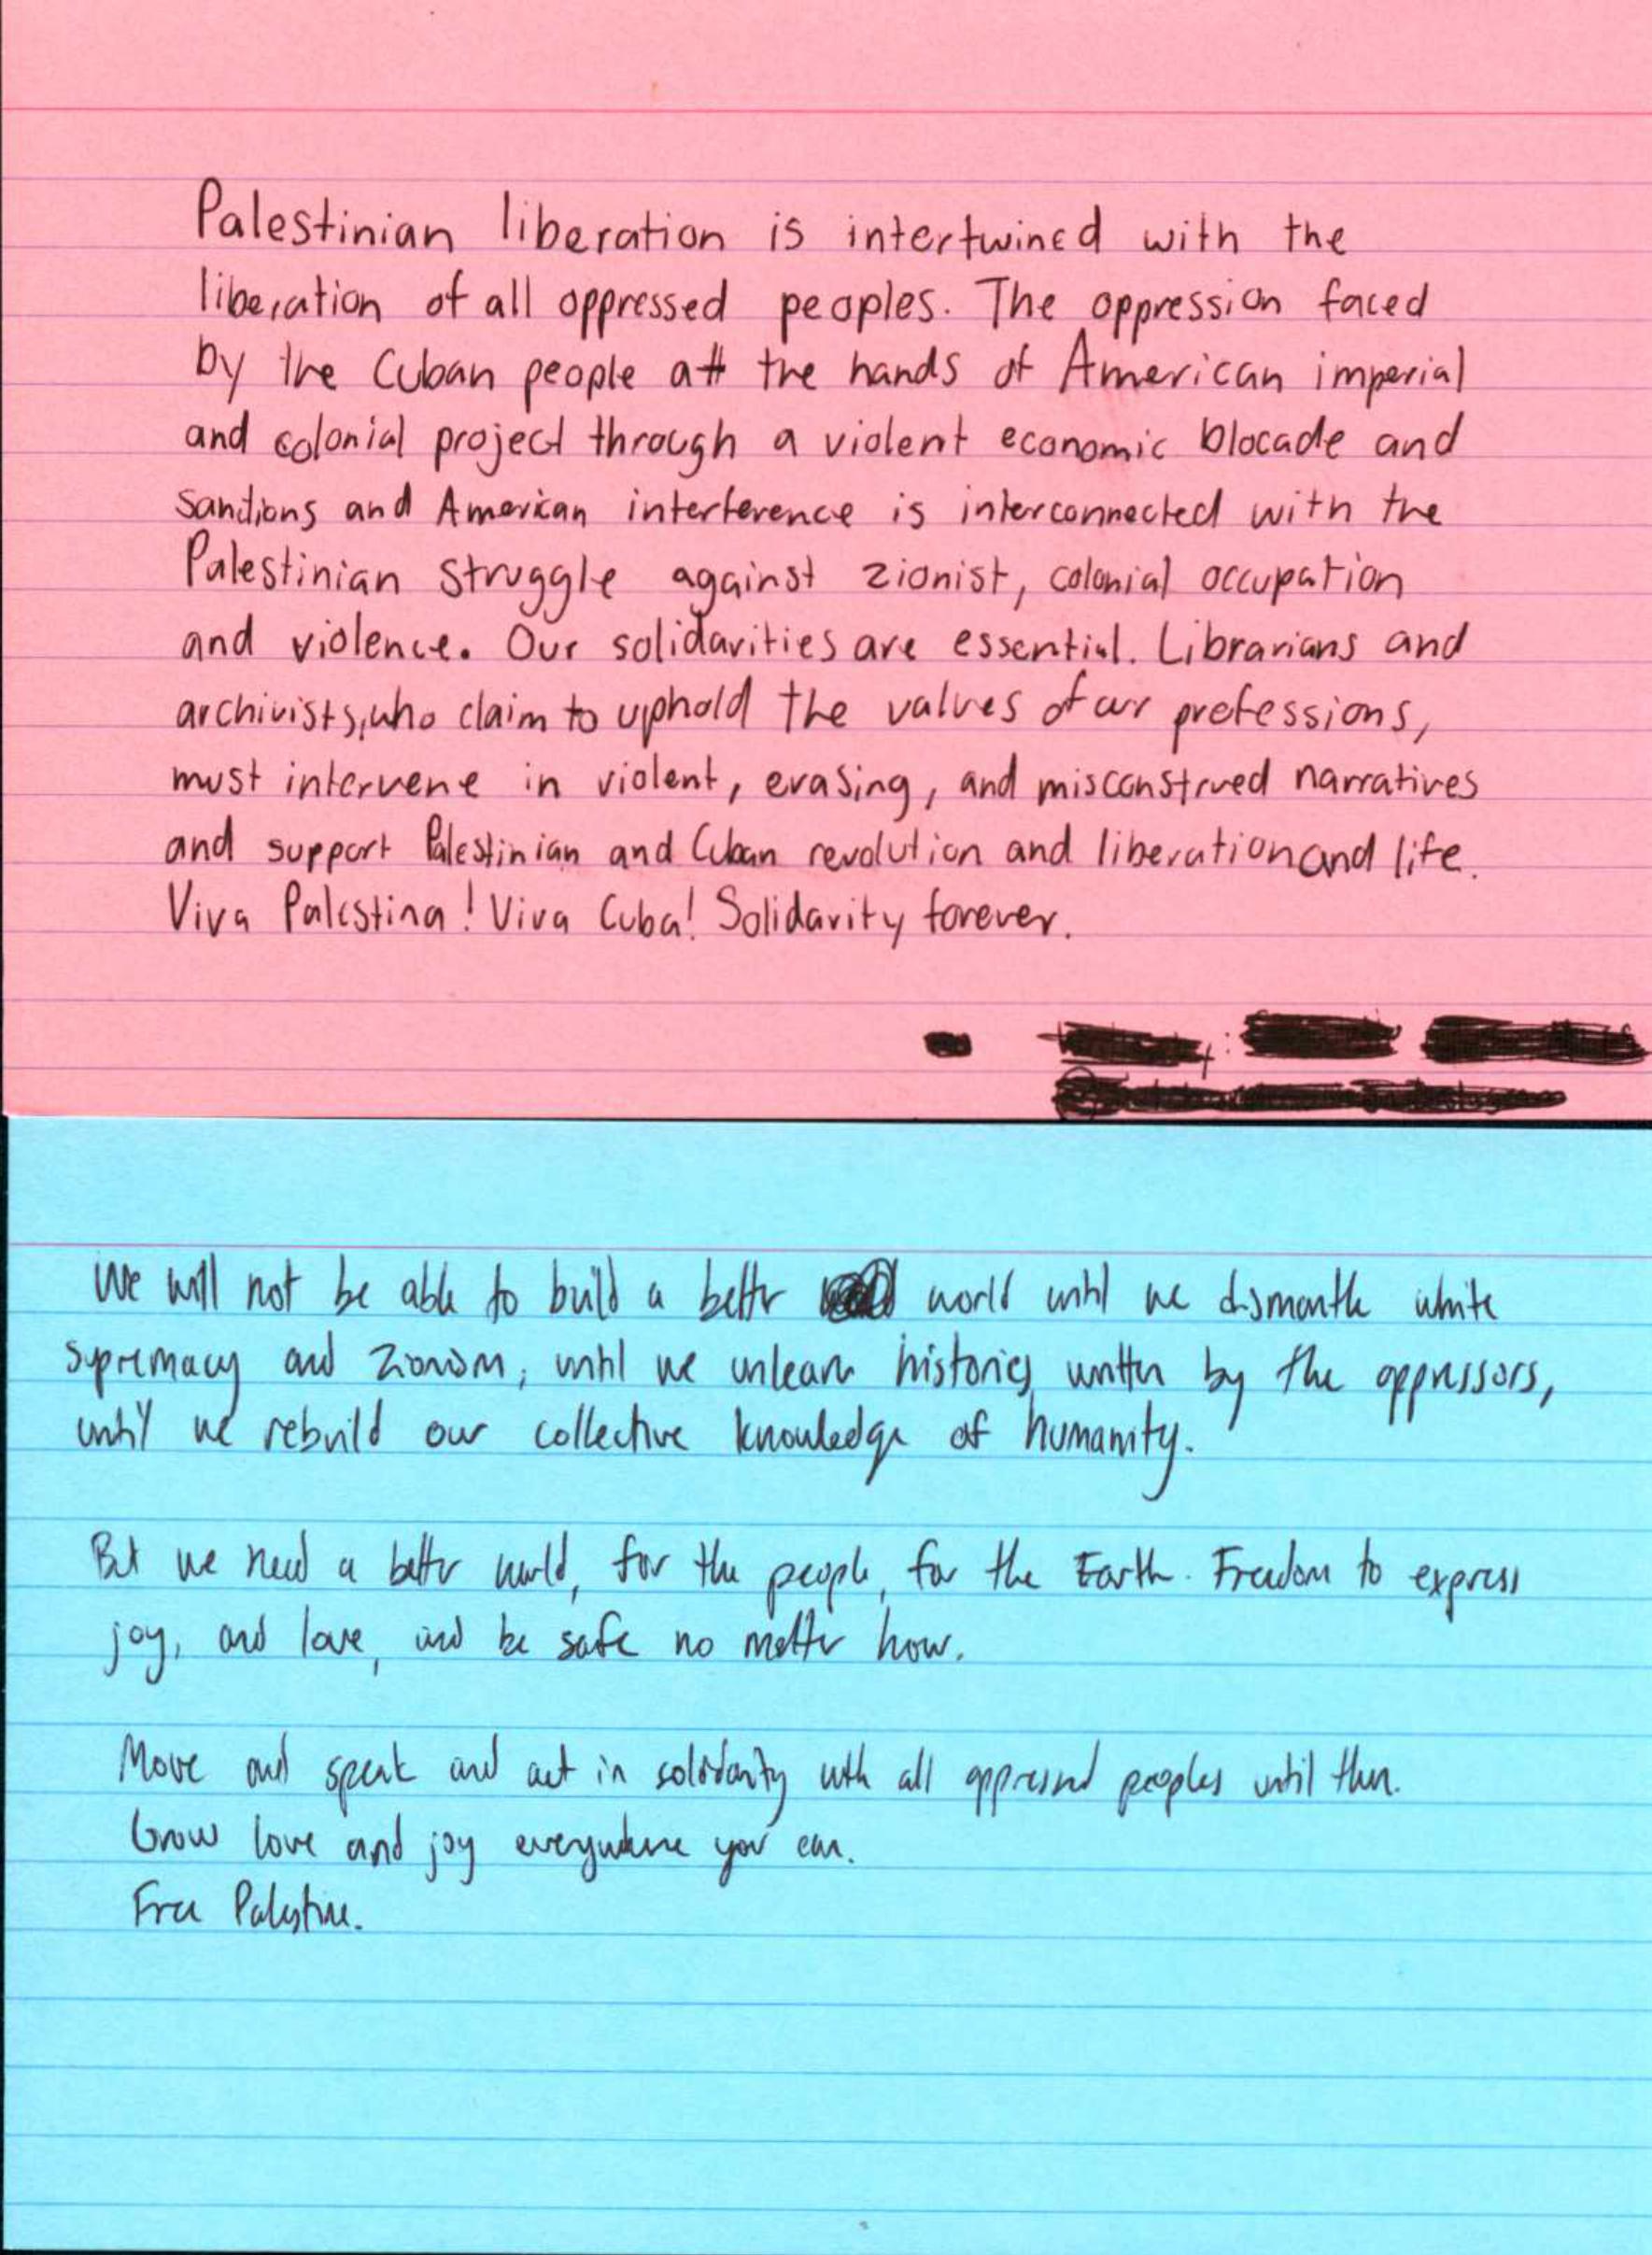 Palestinian liberation is intertwined with the
liberation of all oppressed peoples. The oppression faced
by the Cuban people at the hands of American imperial
and colonial project through a violent economic blocade and
sanctions and American interference is interconnected with the
Palestinian struggle against zionist, colonial occupation
and violence. Our solidarities are essential. Librarians and
archivists, who claim to uphold the values of our professions,
must intervene in violent, erasing, and misconstrued narratives
and support Palestinian and Cuban revolution and liberation and life.
Viva Palestina! Viva Cuba! Solidarity forever.
We will not be able to build a better world until we dismantle white
supremacy and Zionism, until we unlearn histories written by the oppressors,
until we rebuild our collective knowledge of humanity.
But we need a better world, for the people, for the Earth. Freedom to express
joy, and love, and be safe no matter how.
Move and speak and act in solidarity with all oppressed peoples until then.
Grow love and joy everywhere you can.
Free Palestine.